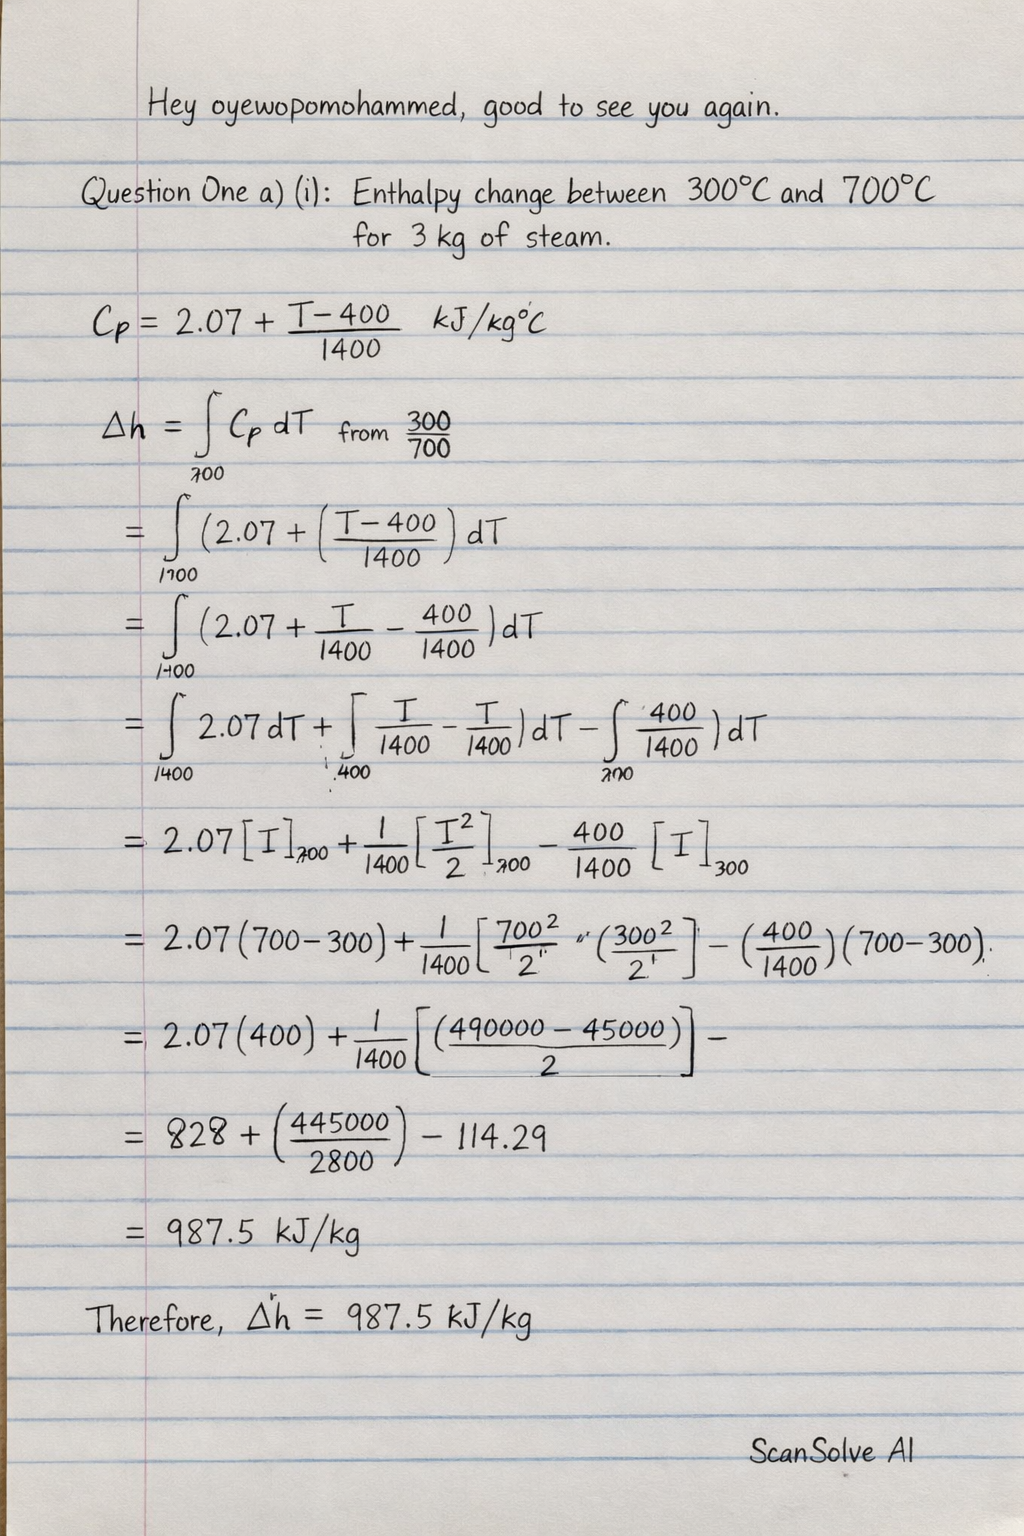 Hey oyewopomohammed, good to see you again.
Question One a) (i): Enthalpy change between 300°C and 700°C
for 3 kg of steam.
Cp = 2.07 + (T-400)/1400 kJ/kg°C
Δh = ∫700 Cp dT from 300/700
= ∫ (2.07 + ((T-400)/1400) dT
= ∫ (2.07 + T/1400 - 400/1400) dT
= ∫1400 2.07 dT + ∫400 T/1400 - T/1400) dT - ∫ 400/1400) dT
= 2.07 [T]700 + 1/1400 [T²/2]700 - 400/1400 [T]300
= 2.07 (700-300) + 1/1400 [700²/2 " (300²/2] - (400/1400)(700-300).
= 2.07 (400) + 1/1400 [(490000 - 45000)/2] -
= 828 + (445000/2800) - 114.29
= 987.5 kJ/kg
Therefore, Δh = 987.5 kJ/kg
ScanSolve AI